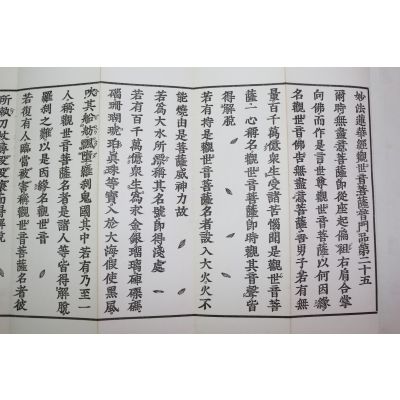 妙法蓮華經觀世音菩薩普門品第二十五
爾時無盡意菩薩即從座起偏袒右肩合掌
向佛而作是言世尊觀世音菩薩以何因緣
名觀世音佛告無盡意菩薩善男子若有無
量百千萬億衆生受諸苦惱聞是觀世音菩
薩一心稱名觀世音菩薩即時觀其音聲皆
得解脫
若有持是觀世音菩薩名者設入大火火不
能燒由是菩薩威神力故
若爲大水所漂稱其名號即得淺處
若有百千萬億衆生爲求金銀瑠璃硨磲碼
碯珊瑚琥珀眞珠等寶入於大海假使黑風
吹其船舫飄墮羅刹鬼國其中若有乃至一
人稱觀世音菩薩名者是諸人等皆得解脫
羅刹之難以是因緣名觀世音
若復有人臨當被害稱觀世音菩薩名者彼
所執刀杖尋段段壞而得解脫